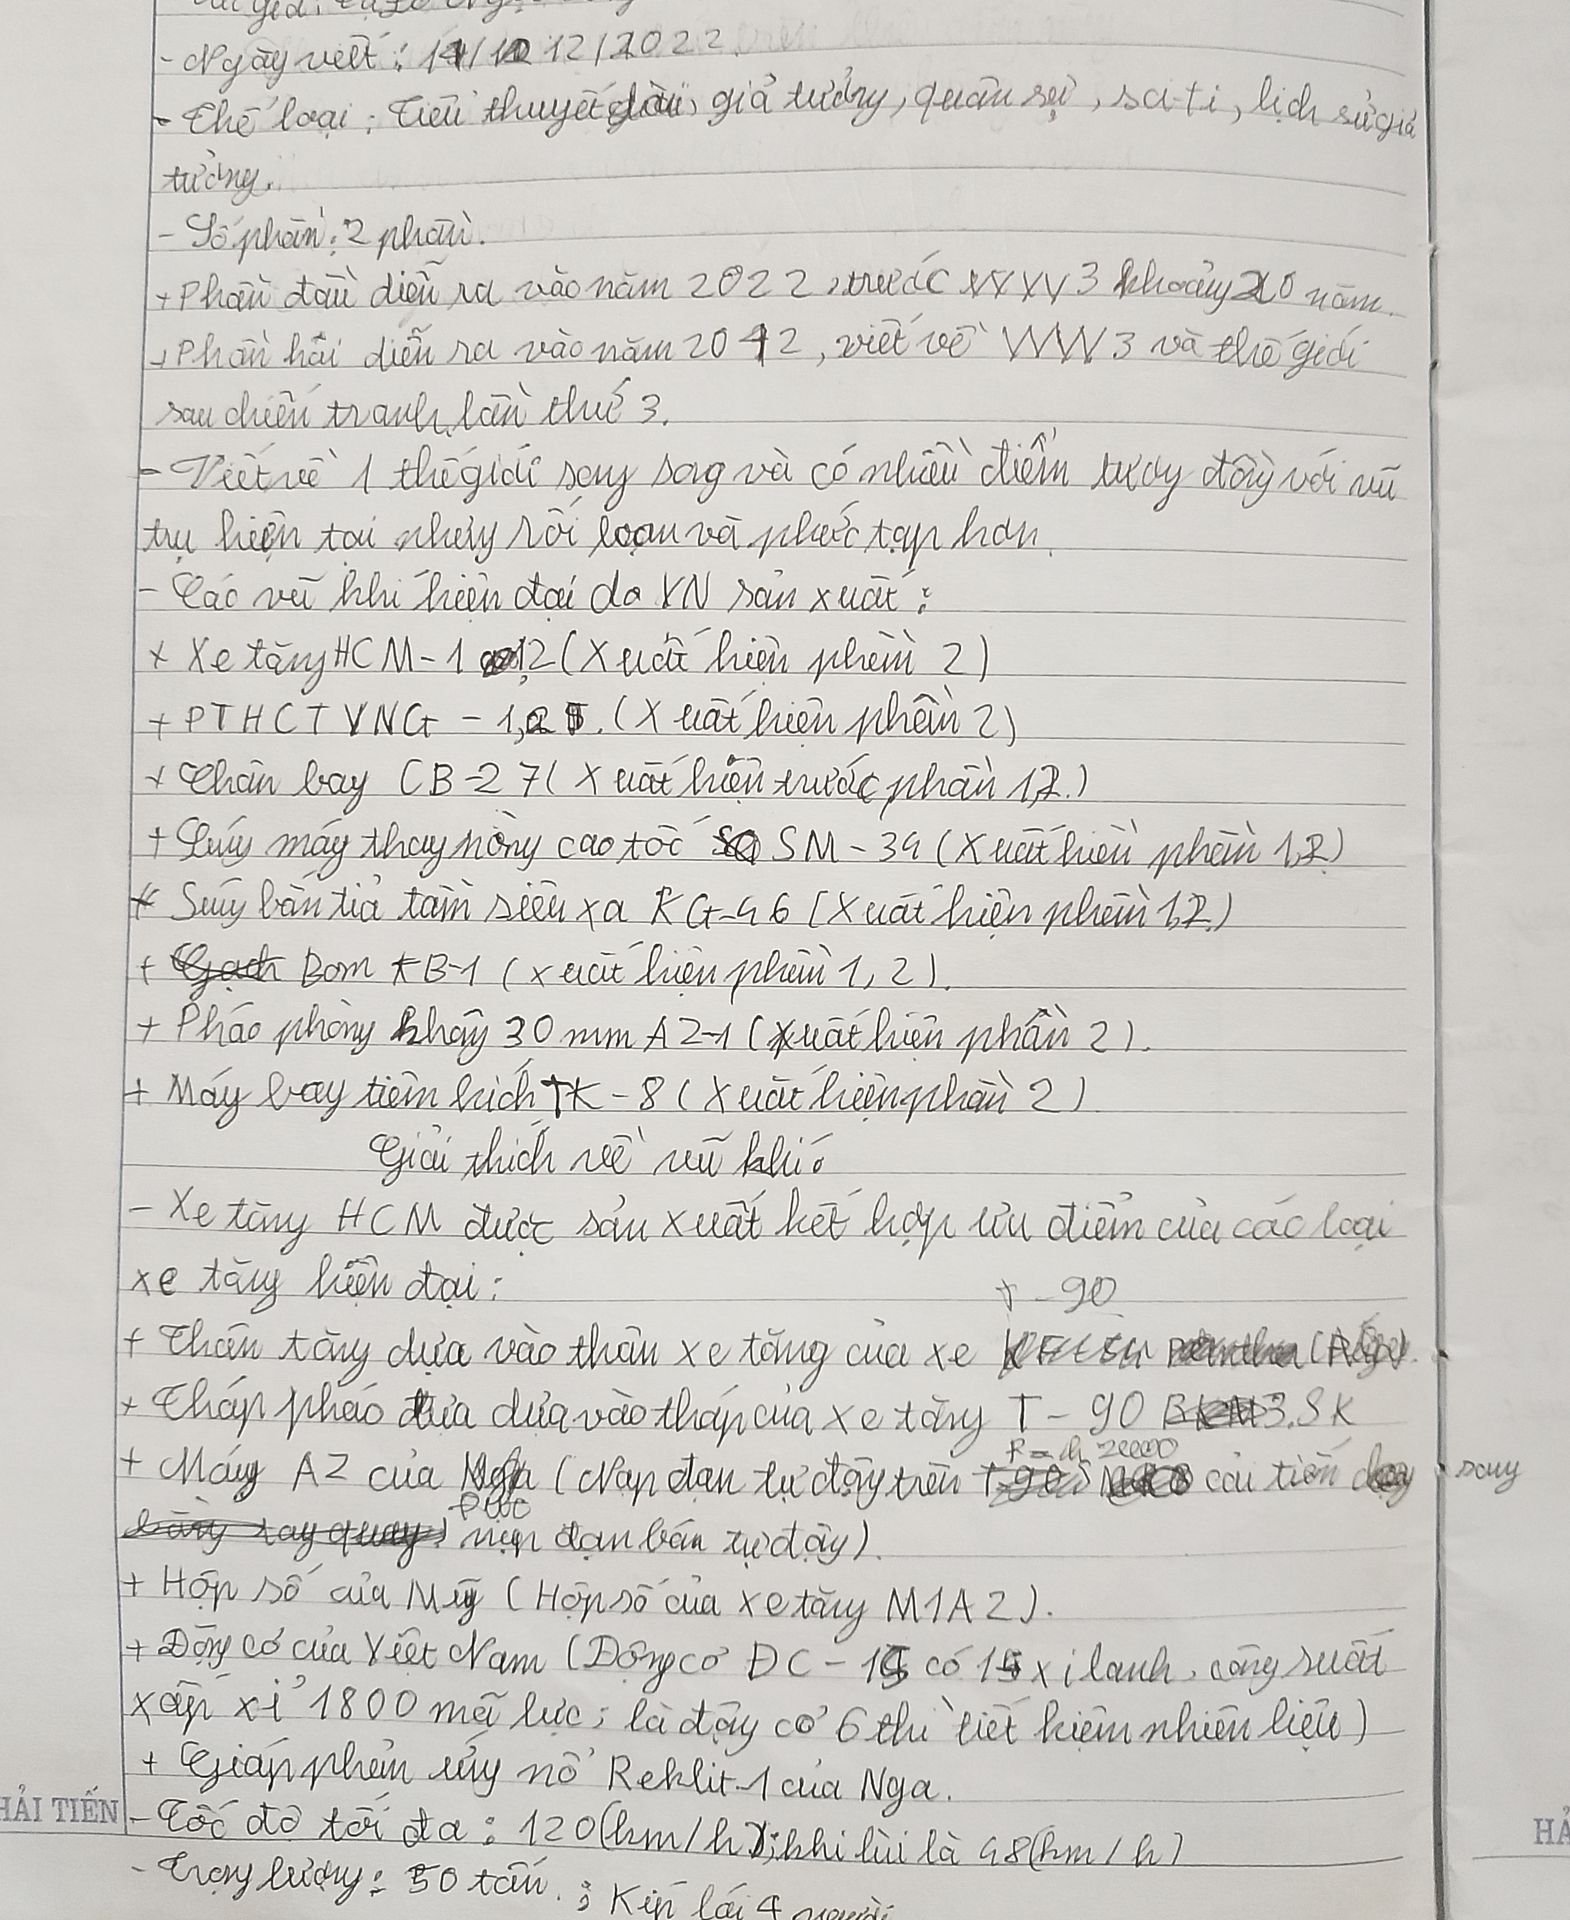 - Ngày viết: 12/2022
- Thể loại: Tiểu thuyết dài, giả tưởng, quân sự, sci-ti, lịch sử giả
tưởng.
- Số phần: 2 phần.
+ Phần đầu diễn ra vào năm 2022, trước WW3 khoảng 20 năm.
+ Phần hai diễn ra vào năm 2042, viết về WW3 và thế giới
sau chiến tranh lần thứ 3.
- Viết về 1 thế giới song song và có nhiều điểm tương đồng với vũ
trụ hiện tại nhưng rối loạn và phức tạp hơn.
- Các vũ khí hiện đại do VN sản xuất:
+ Xe tăng HCM-1,2 (Xuất hiện phần 2)
+ PTHCT VNG - 1, (Xuất hiện phần 2)
+ Thân bay CB-27 (Xuất hiện trước phần 1,2.)
+ Súng máy thay nòng cao tốc SM-34 (Xuất hiện phần 1,2)
+ Súng bắn tỉa tầm siêu xa KG-46 (Xuất hiện phần 1,2.)
+ Bom KB-1 (xuất hiện phần 1, 2).
+ Pháo phòng không 30mm A2-1 (Xuất hiện phần 2).
+ Máy bay tiêm kích TK-8 (Xuất hiện phần 2)
Giải thích về vũ khí:
- Xe tăng HCM được sản xuất kết hợp ưu điểm của các loại
xe tăng hiện đại:
T-90
+ Thân tăng dựa vào thân xe tăng của xe
+ Tháp pháo dựa vào tháp của xe tăng T-90 SK
+ Máy AZ của (Nạp đạn tự động trên cải tiến sang
nạp đạn bán tự động).
+ Hộp số của Mỹ (Hộp số của xe tăng M1A2).
+ Động cơ của Việt Nam (Động cơ ĐC-15 có 15 xi lanh, công suất
xấp xỉ 1800 mã lực; là động cơ 6 thì tiết kiệm nhiên liệu)
+ Giáp phản ứng nổ Reklit-1 của Nga.
- Tốc độ tối đa: 120(km/h); khi lùi là 48(km/h)
- Trọng lượng: 50 tấn.; Kíp lái 4 người
HẢI TIẾN
HẢ